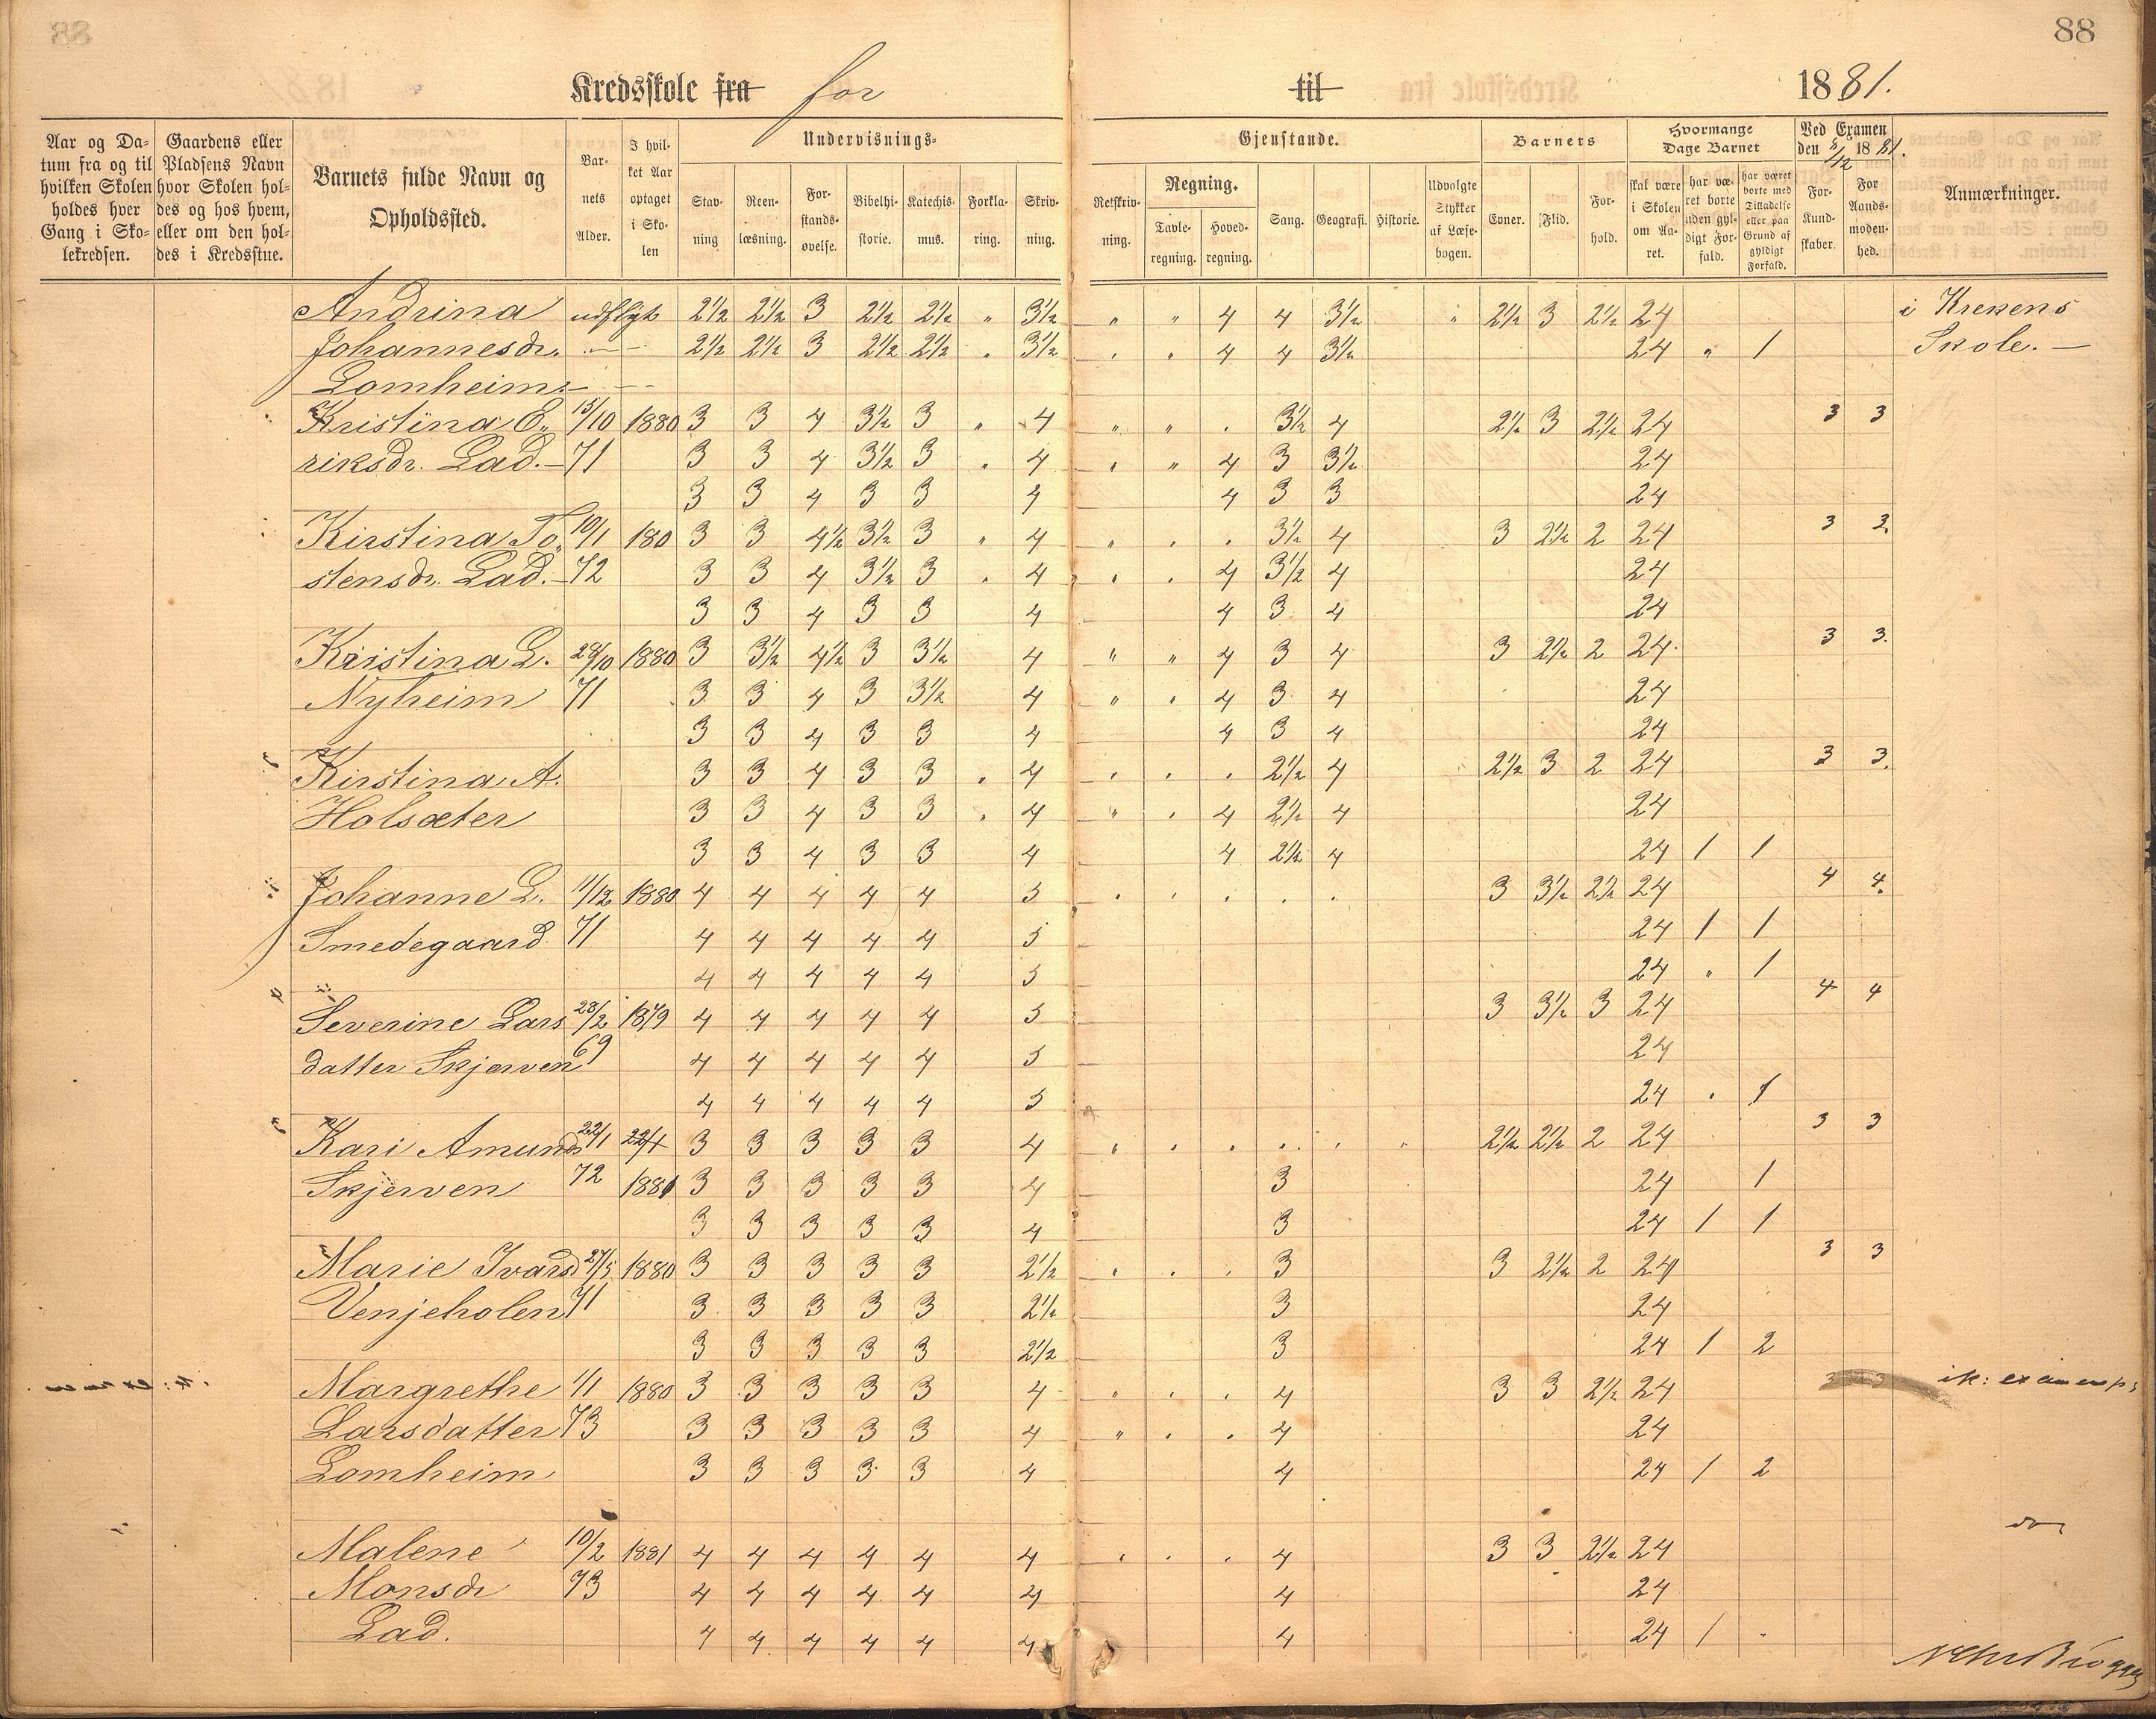 88
Kredsskole fra for til 1881.
Aar og Da-
tum fra og til
hvilken Skolen
holdes hver
Gang i Sko-
lekredsen.
Gaardens eller
Pladsens Navn
hvor Skolen hol-
des og hos hvem,
eller om den hol-
des i Kredsstue.
Barnets fulde Navn og
Opholdssted.
Bar-
nets
Alder.
I hvil-
ket Aar
optaget
i Sko-
len
Undervisnings-
Stav-
ning
Reen-
læsning.
For-
stands-
øvelse.
Bibelhi-
storie.
Katechis-
mus.
Forkla-
ring.
Skriv-
ning.
Gjenstande.
Retskriv-
ning.
Regning.
Tavle-
regning.
Hoved-
regning.
Sang.
Geografi.
Historie.
Udvalgte
Stykker
af Læse-
bogen.
Barnets
Evner.
Flid.
For-
hold.
Hvormange
Dage Barnet
skal være
i Skolen
om Aa-
ret.
har væ-
ret borte
uden gyl-
digt For-
fald.
har været
borte med
Tilladelse
eller paa
Grund af
gyldigt
Forfald.
Ved Examen
den 8/12 1881.
For
Kund-
skaber.
For
Aands-
moden-
hed.
Anmærkninger.
Andrina udflyt 2½ 2½ 3 2½ 2½ " 3½ " " 4 4 3½ " 2½ 3 2½ 24 i Krekens
Johannesdr. — 2½ 2½ 3 2½ 2½ " 3½ " " 4 4 3½ 24 " 1 Skole. —
Lomheim — —
Kristina E. 15/10 1880 3 3 4 3½ 3 " 4 " " . 3½ 4 2½ 3 2½ 24 3 3
riksdr. Lad. — 71 3 3 4 3½ 3 " 4 " " 4 3 3½ 24
3 3 4 3 3 4 4 3 3 24
Kirstina To, 10/1 180 3 3 4½ 3½ 3 " 4 " . . 3½ 4 3 2½ 2 24 3 3
stensdr. Lad. — 72 3 3 4 3½ 3 . 4 . . 4 3½ 4 24
3 3 4 3 3 4 4 3 4 24
Kristina L. 28/10 1880 3 3½ 4½ 3 3½ 4 " " 4 3 4 3 2½ 2 24 3 3.
Nyheim 71 3 3 4 3 3½ 4 " . 4 3 4 24
3 3 4 3 3 4 4 3 4 24
Kirstina A. 3 3 4 3 3 . 4 . . . 2½ 4 2½ 3 2 24 3 3.
Holsæter 3 3 4 3 3 . 4 " . 4 2½ 4 24
3 3 4 3 3 4 4 2½ 4 24 1 1
Johanne L. 11/12 1880 4 4 4 4 4 5 . . . . . 3 3½ 2½ 24 4 4.
Smedegaard 71 4 4 4 4 4 5 24 1 1
4 4 4 4 4 5 24 " 1
Severine Lars 28/2 1879 4 4 4 4 4 5 3 3½ 3 24 4 4
datter Skjerven 69 4 4 4 4 4 5 24
4 4 4 4 4 5 24 . 1
Kari Amunds 22/1 22/1 3 3 3 3 3 4 " . . . . " 2½ 2½ 2 24 3 3
Skjerven 72 1881 3 3 3 3 3 4 3 24 1
3 3 3 3 3 4 3 24 1 1
Marie Ivarsd 27/5 1880 3 3 3 3 3 2½ . . . 3 3 2½ 2 24 3 3
Venjeholen 71 3 3 3 3 3 2½ 3 24
3 3 3 3 3 2½ 3 24 1 2
Margrethe 1/1 1880 3 3 3 3 3 4 " . . 4 3 3 2½ 24
Larsdatter 73 3 3 3 3 3 4 " . . 4 24
Lomheim 3 3 3 3 3 4 4 24 1 2
Malene 10/2 1881 4 4 4 4 4 4 . . . 4 3 3 2½ 24
Monsdr 73 4 4 4 4 4 4 4 24
Lad. 4 4 4 4 4 4 4 24 1 .